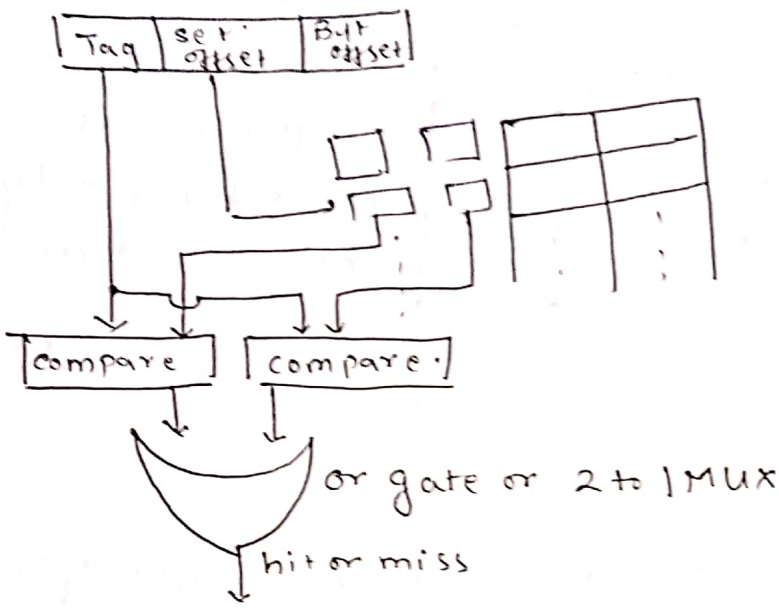 Tag
set offset
Byt offset
compare
compare.
or gate or 2 to 1 MUX
hit or miss